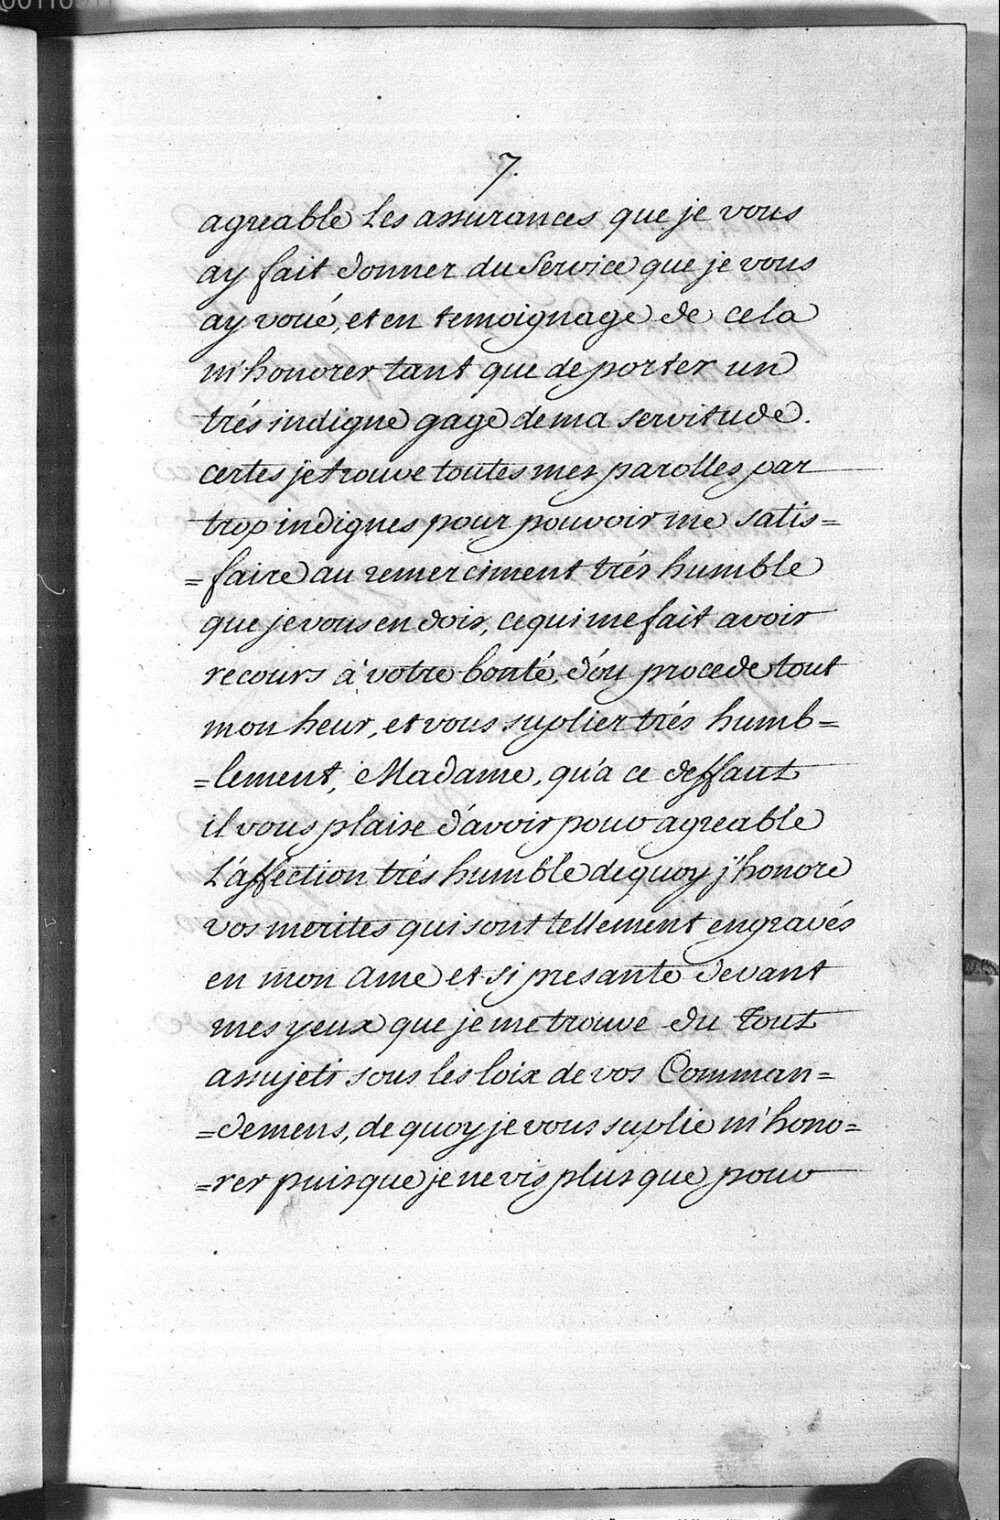 7.
agreable les assurances que je vous
ay fait donner du Service que je vous
ay voüé, et en temoignage de cela
m'honorer tant que de porter un
trés indigne gage de ma servitude.
certes je trouve toutes mes parolles par
trop indignes pour pouvoir me satis=
=faire au remerciment trés humble
que je vous en dois, ce qui me fait avoir
recours à votre bonté, d'óu procede tout
mon heur, et vous suplier trés humb=
=lement, Madame, qu'a ce deffaut
il vous plaise d'avoir pour agreable
L'affection trés humble de quoy j'honore
vos merites qui sont tellement engravés
en mon ame et si presante devant
mes yeux que je me trouve du tout
assujeti sous les loix de vos Comman=
=demens, de quoy je vous suplie m'hono=
=rer puisque je ne vis plus que pour